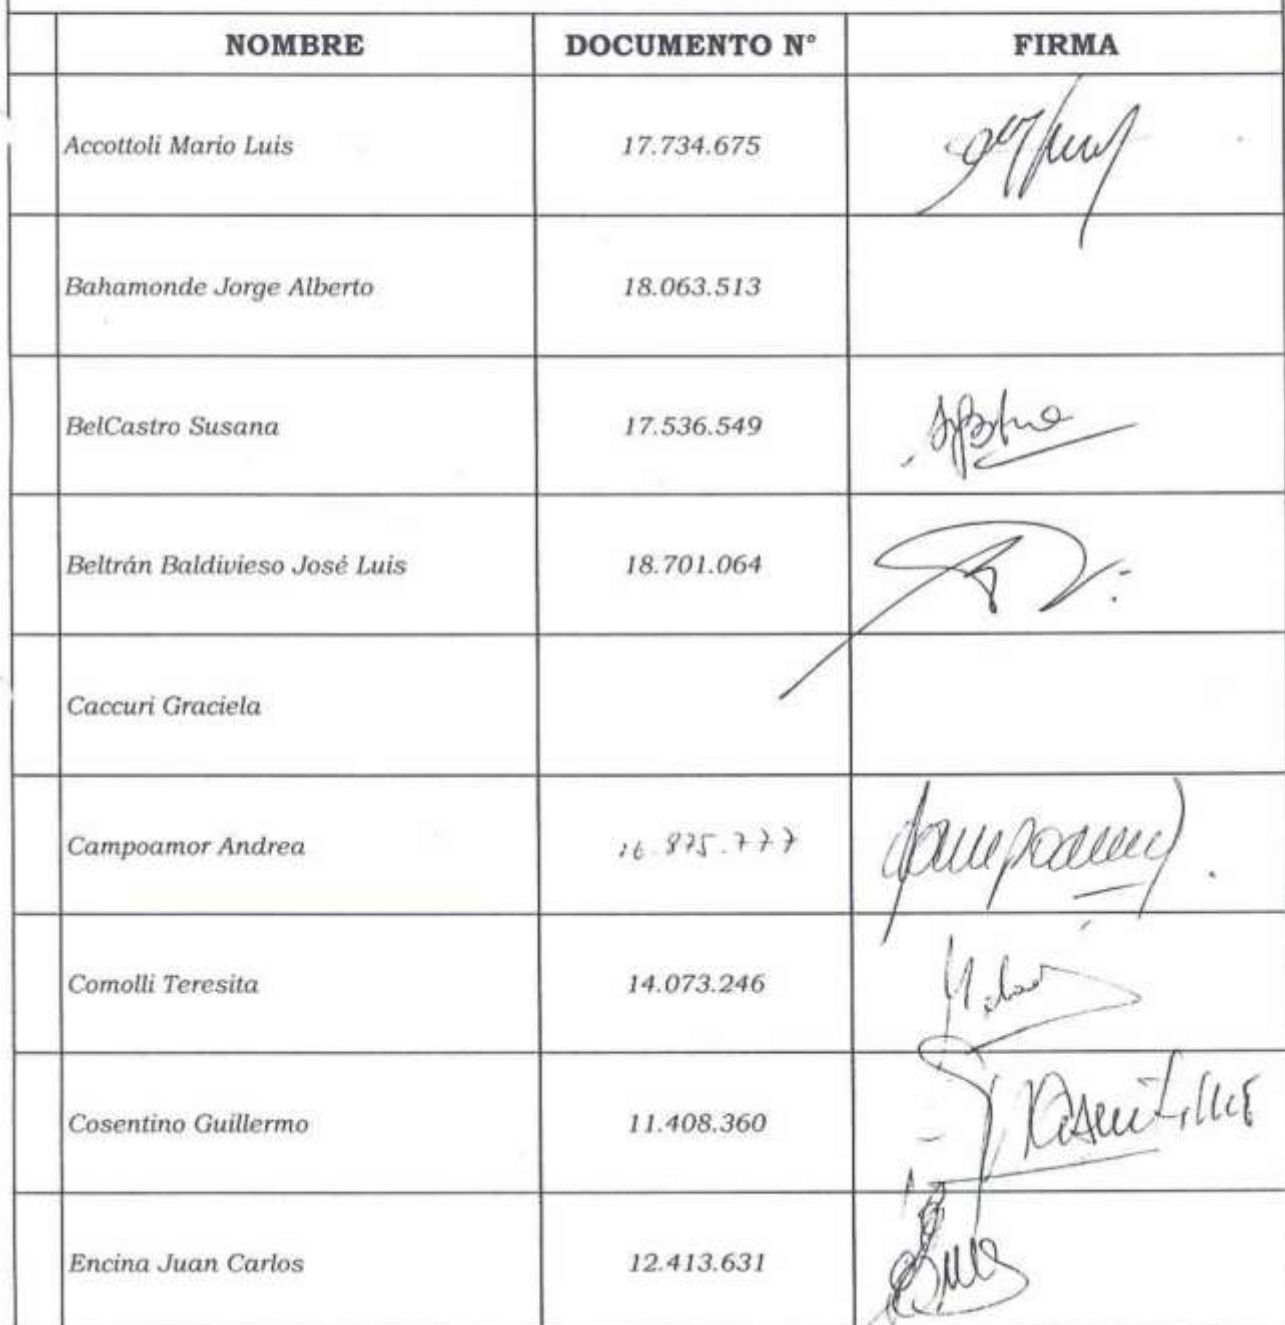 NOMBRE DOCUMENTO N° FIRMA
Accottoli Mario Luis 17.734.675
Bahamonde Jorge Alberto 18.063.513
BelCastro Susana 17.536.549
Beltrán Baldivieso José Luis 18.701.064
Caccuri Graciela
Campoamor Andrea 16.875.777 Campoamor
Comolli Teresita 14.073.246
Cosentino Guillermo 11.408.360
Encina Juan Carlos 12.413.631